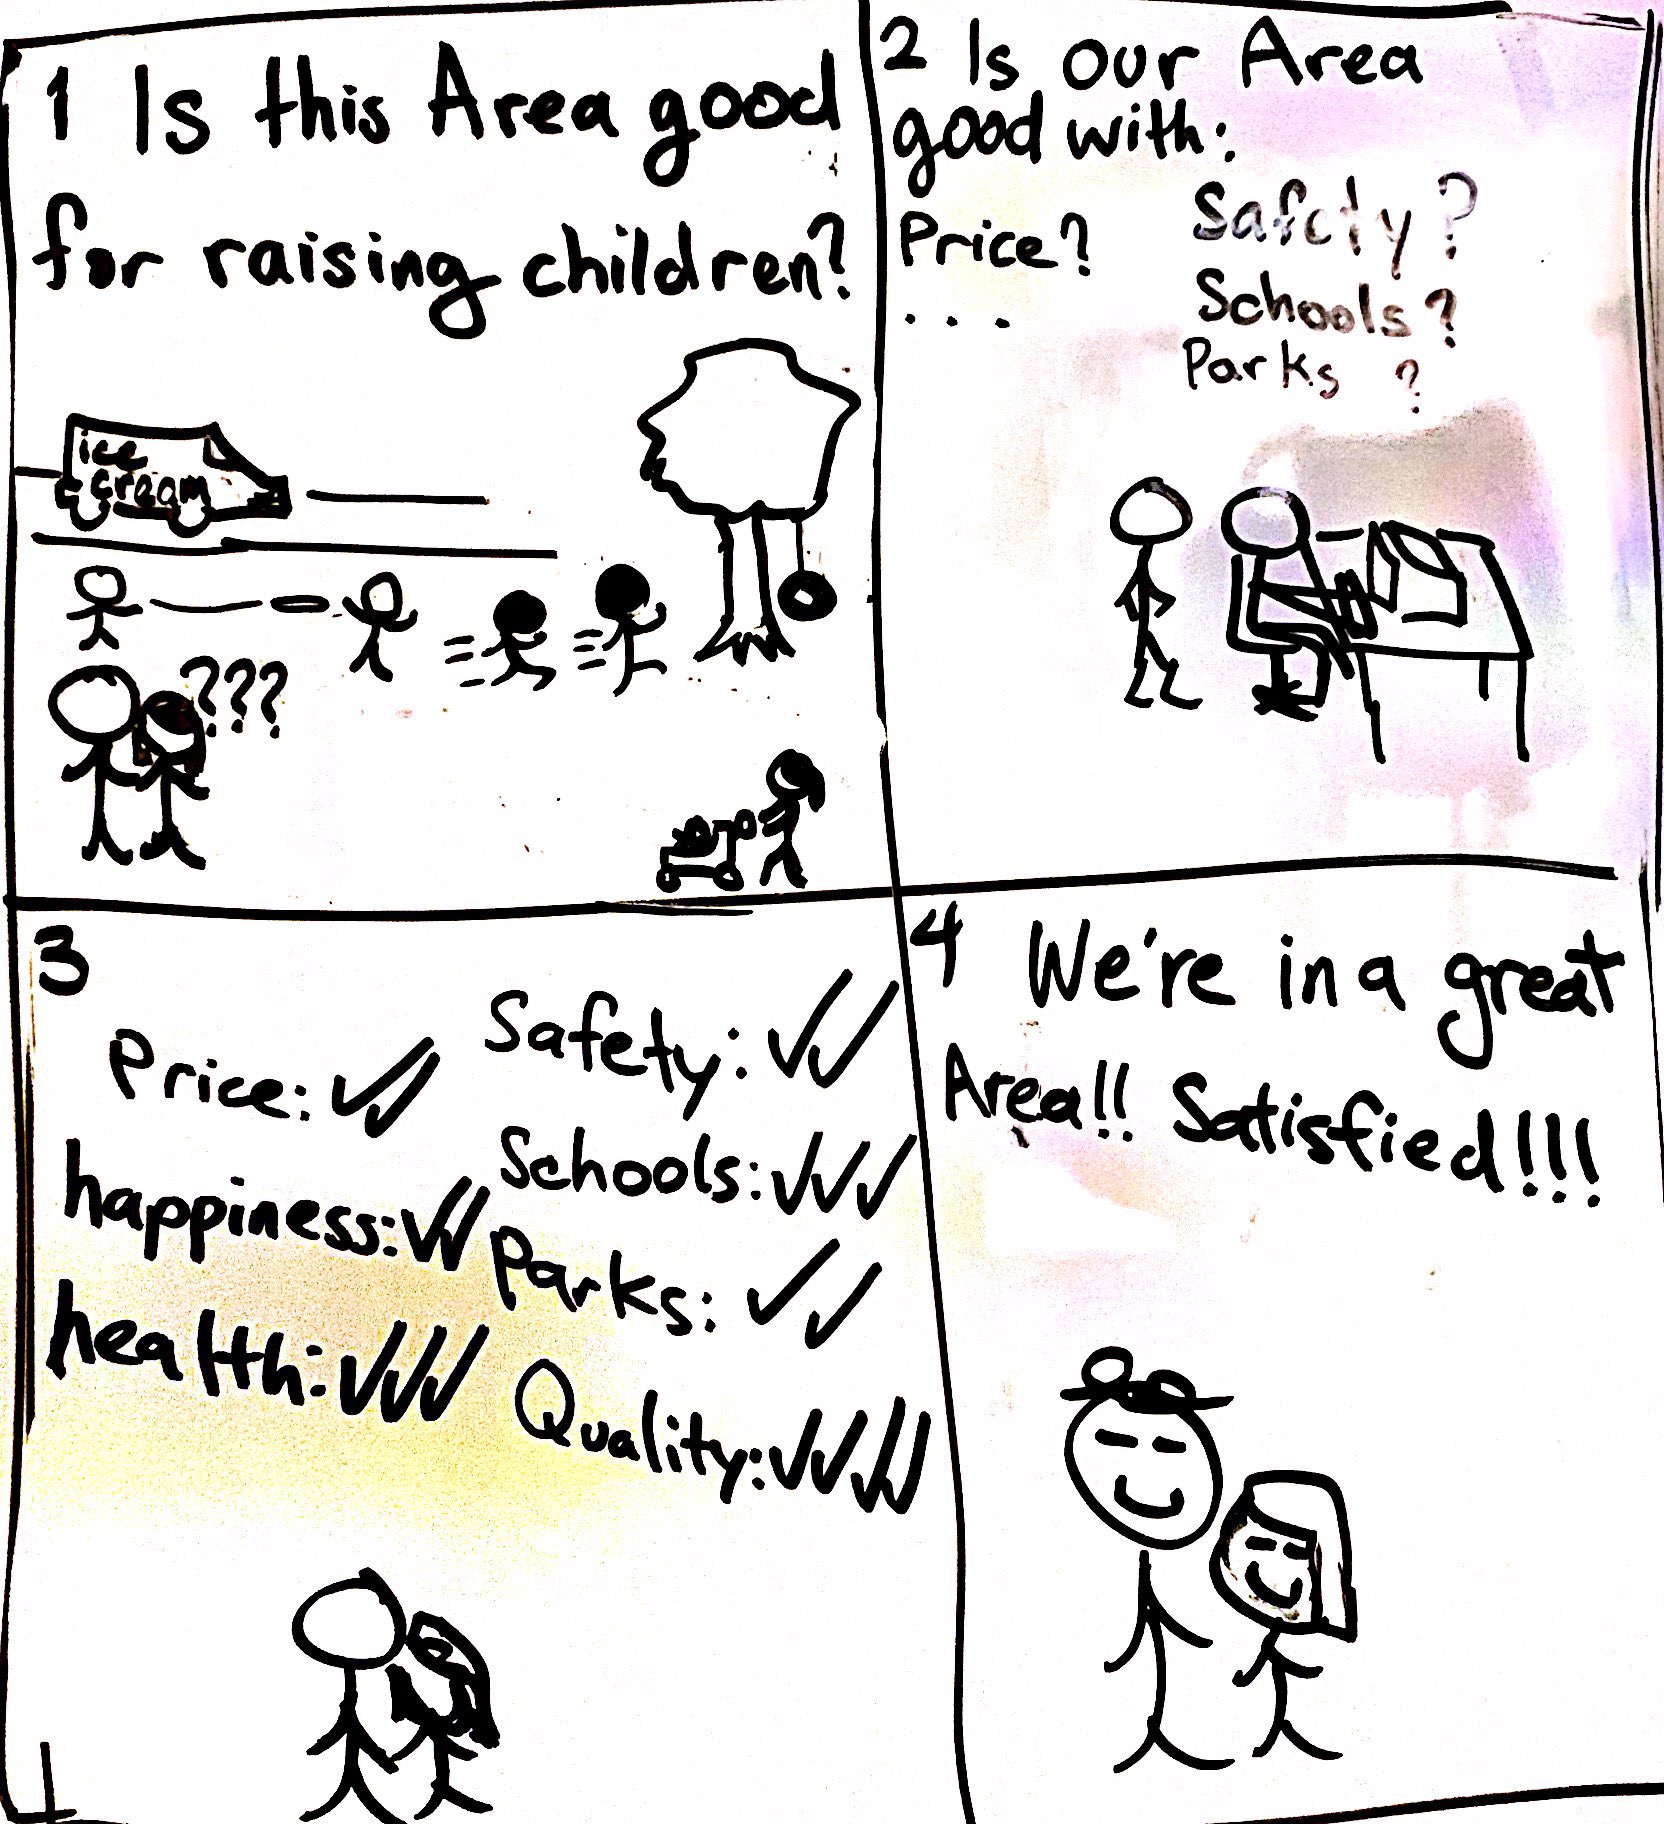 1 Is this Area good
for raising children?
ice
cream
???
2 Is our Area
good with:
Price?
...
Safety?
Schools?
Parks ?
3
Price: ✓✓
happiness: ✓✓
health: ✓✓✓
Safety: ✓✓
Schools: ✓✓✓
Parks: ✓✓
Quality: ✓✓✓✓
4 We're in a great
Area!! Satisfied!!!